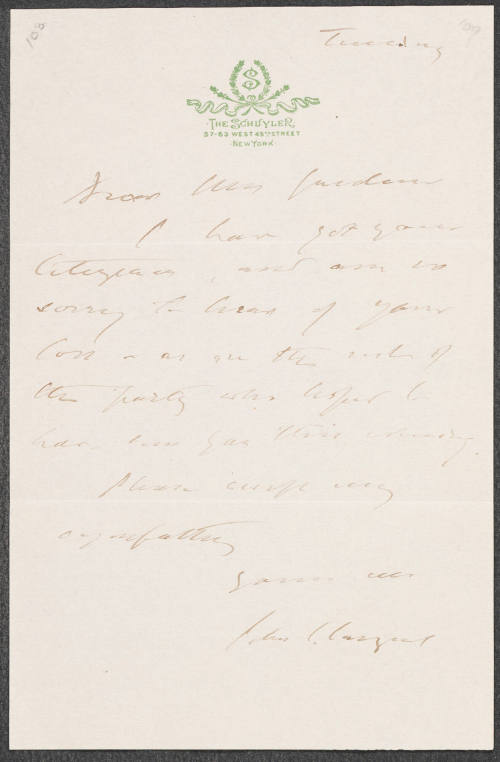 108
109
Tuesday
S
THE SCHUYLER
57-63 WEST 45TH STREET
NEW YORK
Dear Mrs Gardner
I have got your
telegram, and am so
sorry to hear of your
loss - as are the rest of
the party who hoped to
have seen you this evening.
Please accept my
sympathy
yours
John S. Sargent